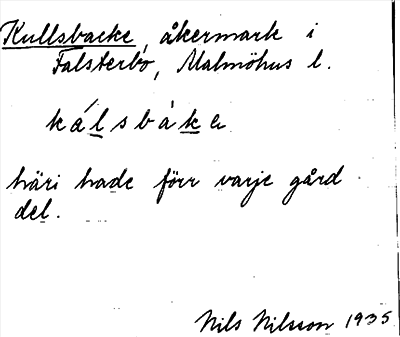 Kullsbacke, åkermark i
Falsterbo, Malmöhus l.
kálsbåkɐ
häri hade förr varje gård
del.
Nils Nilsson 1935